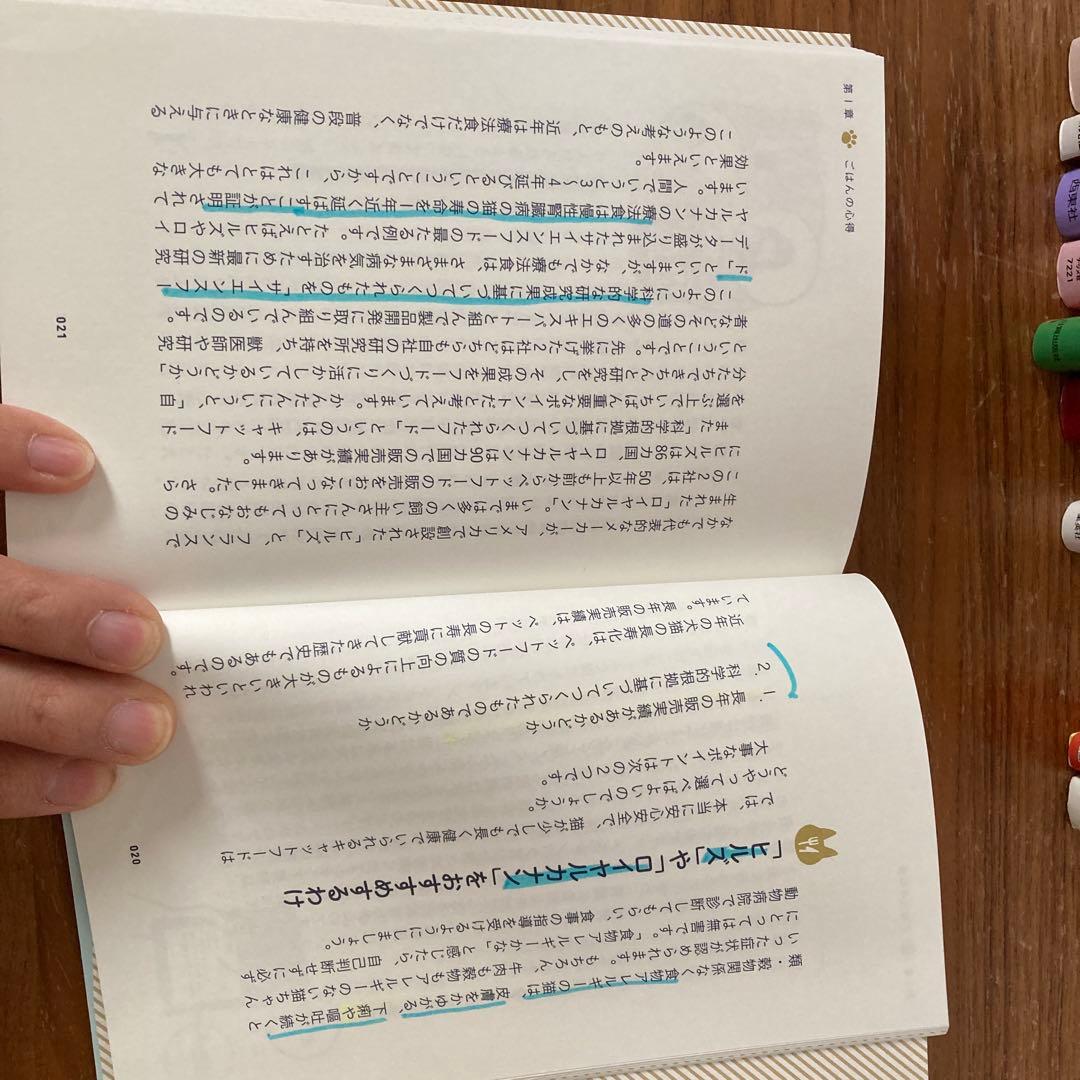 類・穀物関係なく食物アレルギーの猫は、皮膚をかゆがる、下痢や嘔吐が続くと
いった症状が認められます。もちろん、牛肉も穀物もアレルギーのない猫ちゃん
にとっては無害です。「食物アレルギーかな」と感じたら、自己判断せずに必ず
動物病院で診断してもらい、食事の指導を受けるようにしましょう。
「ヒルズ」や「ロイヤルカナン」をおすすめするわけ
では、本当に安心安全で、猫が少しでも長く健康でいられるキャットフードは
どうやって選べばよいのでしょうか。
大事なポイントは次の2つです。
1. 長年の販売実績があるかどうか
2. 科学的根拠に基づいてつくられたものであるかどうか
近年の犬猫の長寿化は、ペットフードの質の向上によるものが大きいといわれ
ています。長年の販売実績は、ペットの長寿に貢献してきた歴史でもあるのです。
020
なかでも代表的なメーカーが、アメリカで創設された「ヒルズ」と、フランスで
生まれた「ロイヤルカナン」。いまでは多くの飼い主さんにとってもおなじみの
この2社は、50年以上も前からペットフードの販売をおこなってきました。さら
にヒルズは86カ国、ロイヤルカナンは90カ国での販売実績があります。
また「科学的根拠に基づいてつくられたフード」というのは、キャットフード
を選ぶ上でいちばん重要なポイントだと考えています。かんたんにいうと、「自
分たちできちんと研究をし、その成果をフードづくりに活かしているかどうか」
ということです。先に挙げた2社はどちらも自社の研究所を持ち、獣医師や研究
者などその道の多くのエキスパートと組んで製品開発に取り組んでいるのです。
このように科学的な研究成果に基づいてつくられたものを「サイエンスフー
ド」といいますが、なかでも療法食は、さまざまな病気を治すために最新の研究
データが盛り込まれたサイエンスフードの最たる例です。たとえばヒルズやロイ
ヤルカナンの療法食は慢性腎臓病の猫の寿命を1年近く延ばすことが証明されて
います。人間でいうと3〜4年延びるということですから、これはとても大きな
効果といえます。
このような考えのもと、近年は療法食だけでなく、普段の健康なときに与える
第1章 ごはんの心得
021
西東社
7221